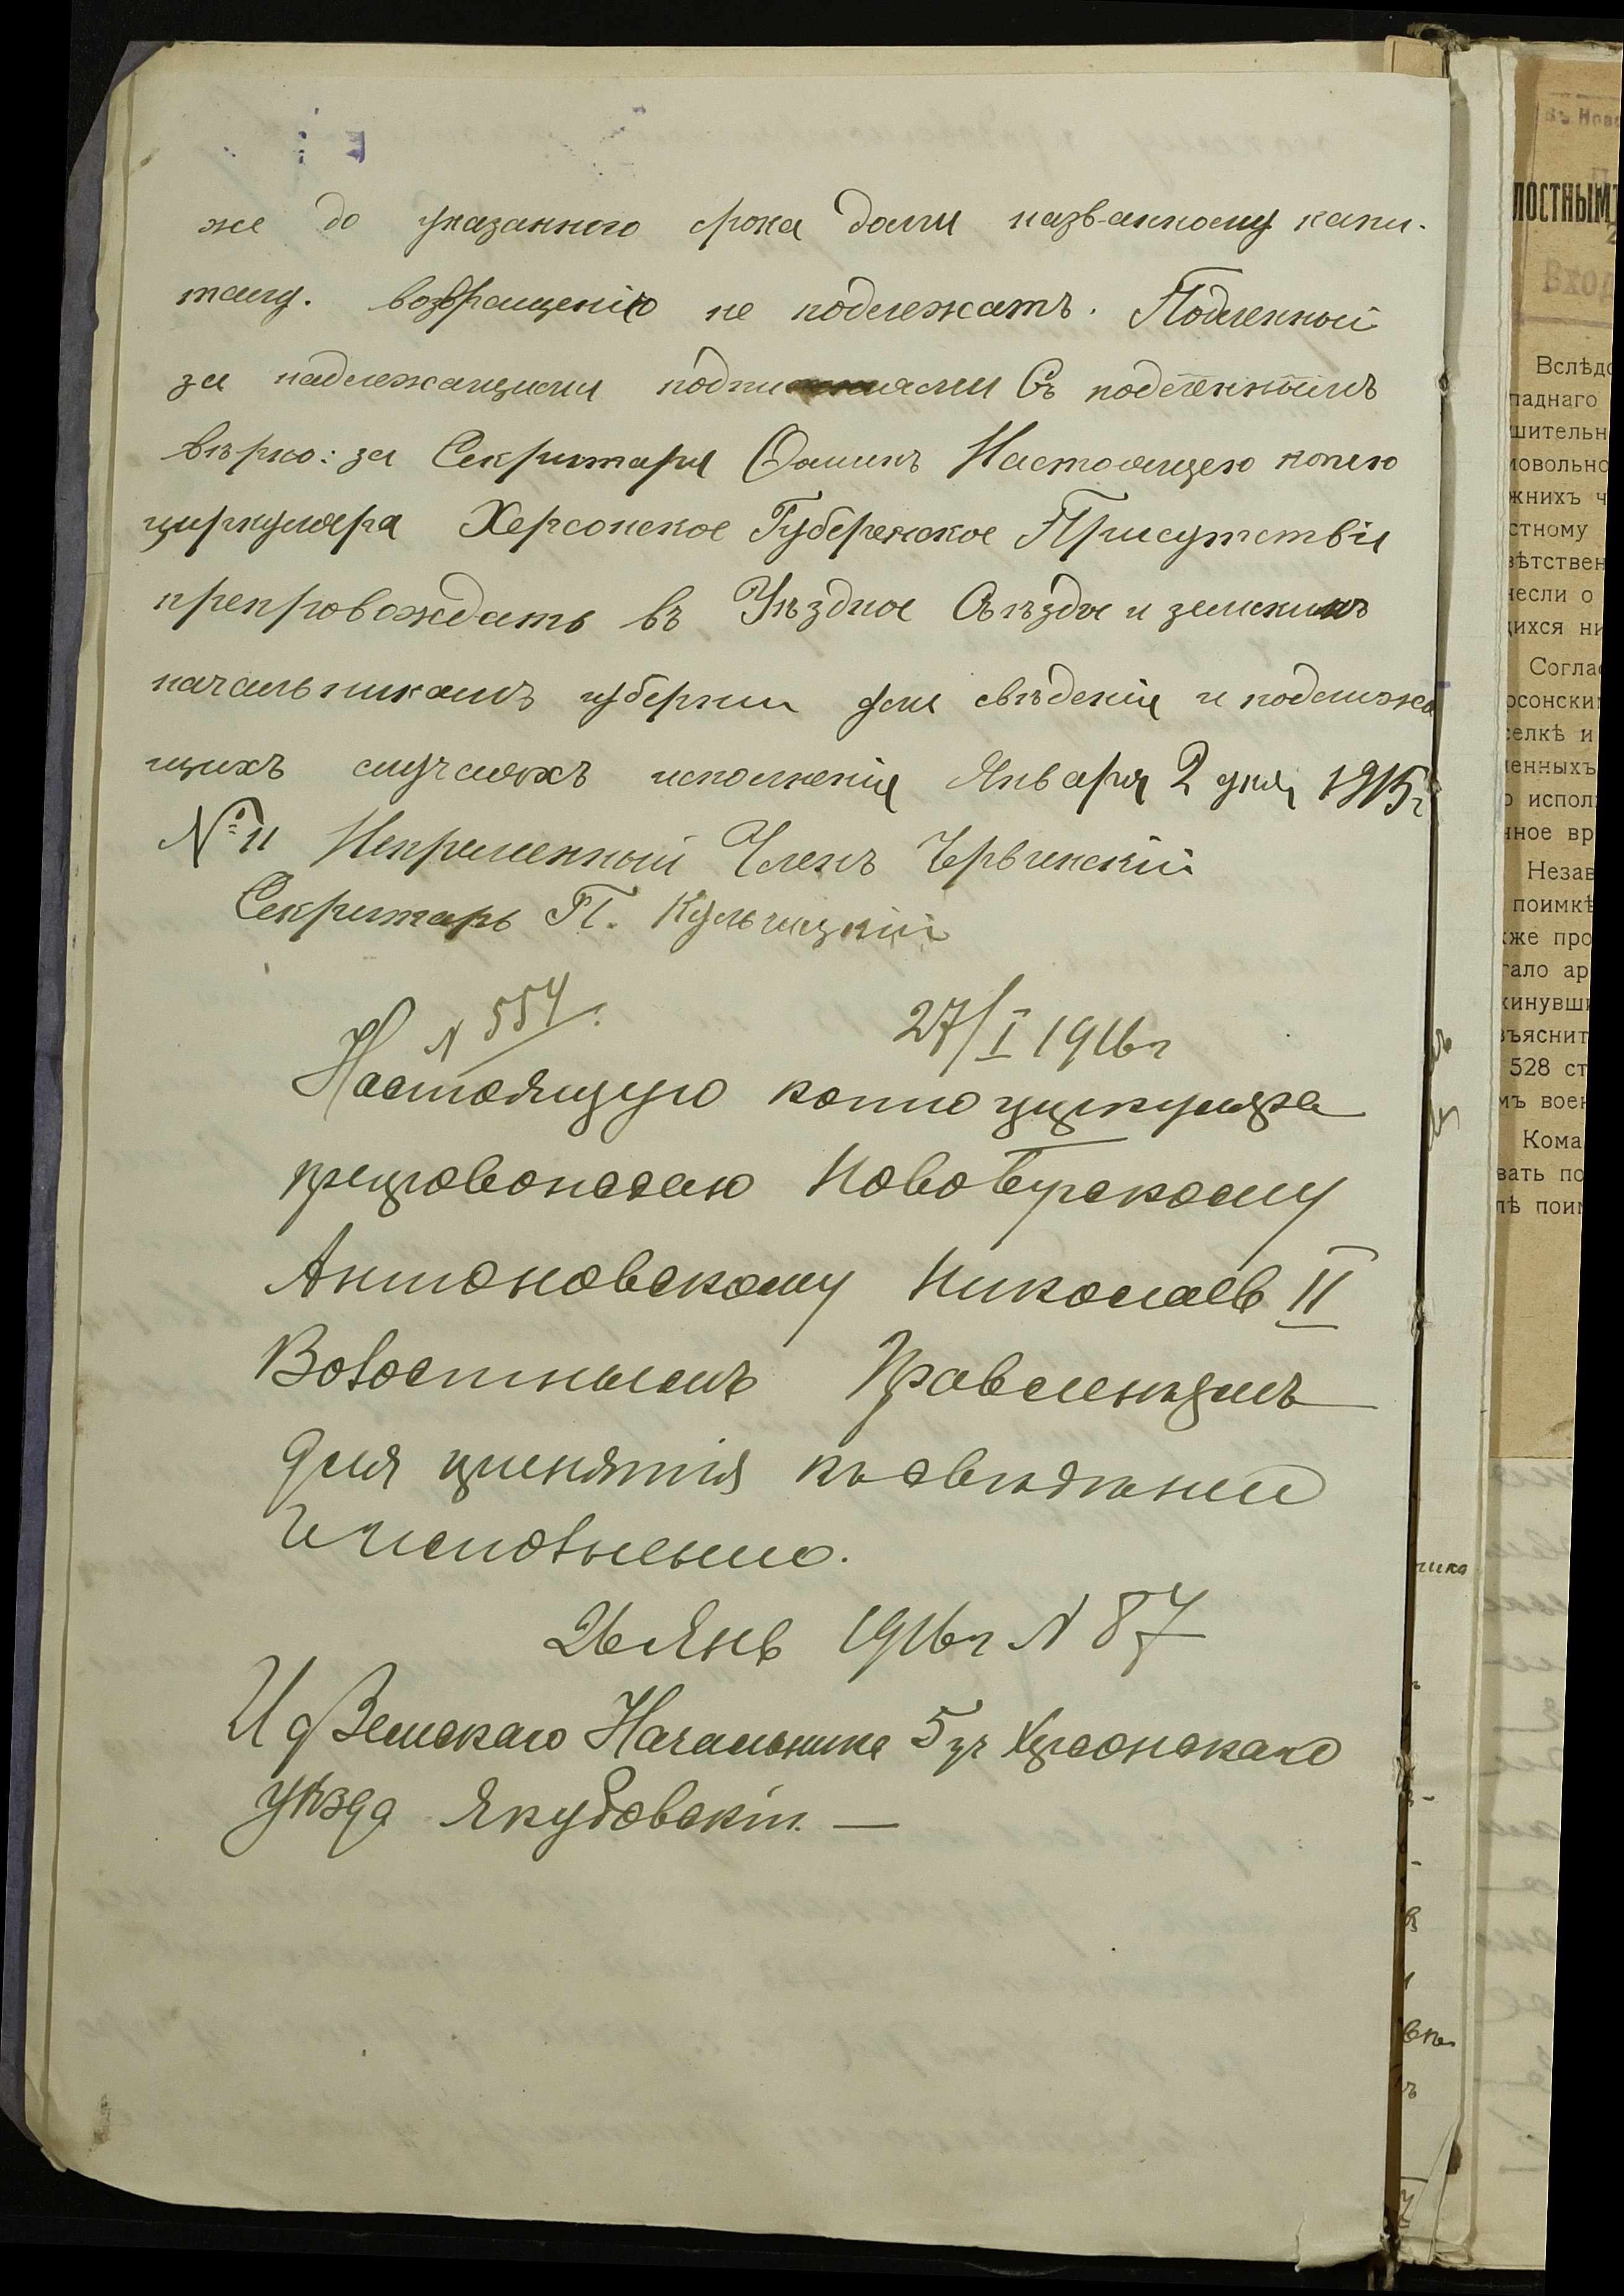 же до указаннаго срока долги названному капи-
талу. возвращенію не подлежатъ. Подленной
за надлежащими подписями Съ подленнымъ
вѣрно: за Секритаря Настоящею копею
циркуляра Херсонское Губеренское Присутствіи
препровождать въ Уѣздное Съѣзды и земскимъ
начальникамъ губерніи для свѣденія и подлижа
щихъ случаяхъ исполненія Января 2 дня 1915г
№ 11 Непременный Членъ Червинскій
Секритарь П. Кульчицкій
N 554. 27/I 1916г
Настоящую копию циркуляра
препровождаю Новобугскому
Антоновскому Николаев II
Волостнымъ Правленіямъ
для принятія къ свѣдѣнию
и исполнению.
26 Янв 1916г N 87
И д Земскаго Начальника 5 уч Херсонскаго
уѣзда Якубовскій. —
ЛОСТНЫМ
Вход
Вслѣд
паднаго
шительн
мовольно
жнихъ ч
стному
вѣтствен
несли о
щихся ни
Соглас
рсонски
селкѣ и
ленныхъ
о испол
нное вр
Незав
поимкѣ
кже про
гало ар
кинувши
ъяснит
528 ст
мъ воен
Кома
вать по
лѣ пои